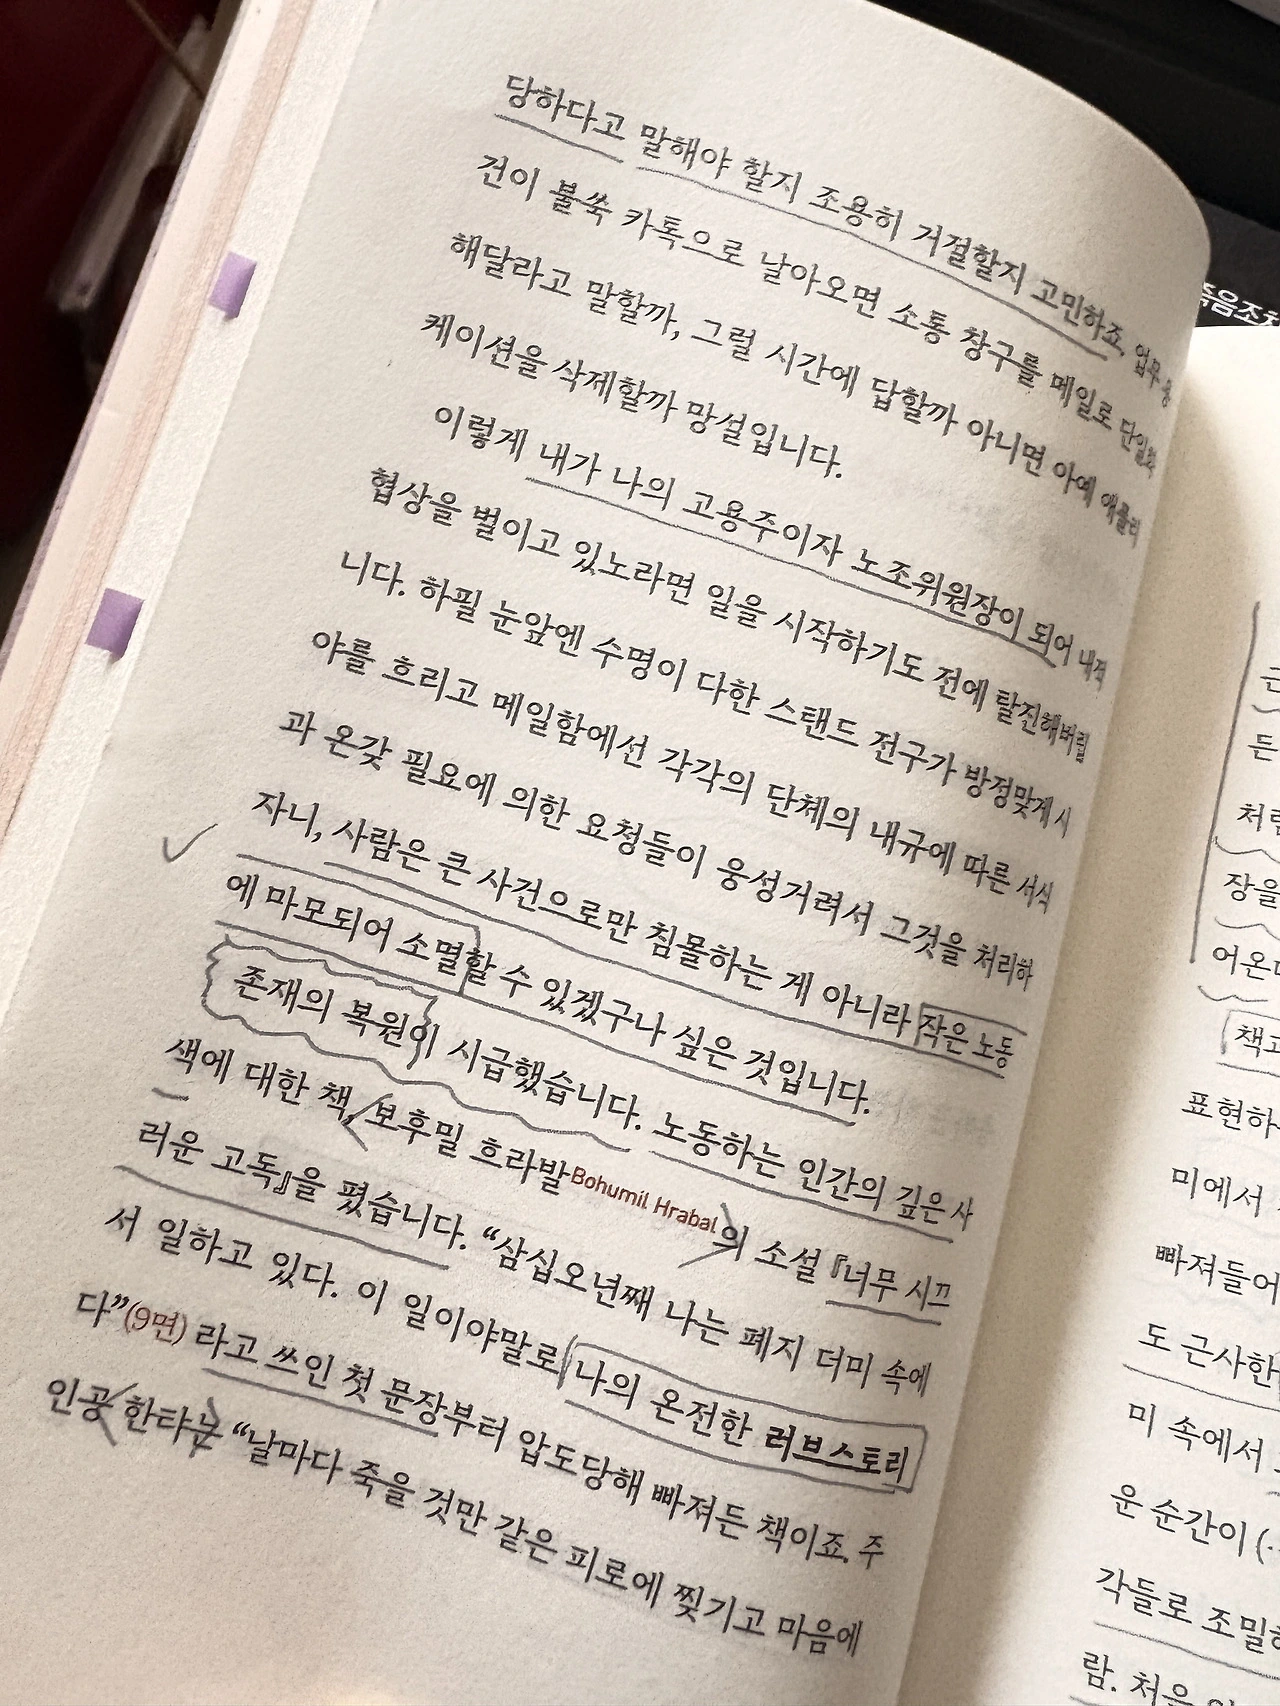 당하다고 말해야 할지 조용히 거절할지 고민하죠. 업무 용
건이 불쑥 카톡으로 날아오면 소통 창구를 메일로 단일화
해달라고 말할까, 그럴 시간에 답할까 아니면 아예 애플리
케이션을 삭제할까 망설입니다.
이렇게 내가 나의 고용주이자 노조위원장이 되어 내적
협상을 벌이고 있노라면 일을 시작하기도 전에 탈진해버립
니다. 하필 눈앞엔 수명이 다한 스탠드 전구가 방정맞게 시
야를 흐리고 메일함에선 각각의 단체의 내규에 따른 서식
과 온갖 필요에 의한 요청들이 웅성거려서 그것을 처리하
자니, 사람은 큰 사건으로만 침몰하는 게 아니라 작은 노동
에 마모되어 소멸할 수 있겠구나 싶은 것입니다.
존재의 복원이 시급했습니다. 노동하는 인간의 깊은 사
색에 대한 책, 보후밀 흐라발Bohumil Hrabal의 소설 『너무 시끄
러운 고독』을 폈습니다. “삼십오년째 나는 폐지 더미 속에
서 일하고 있다. 이 일이야말로 나의 온전한 러브스토리
다”(9면) 라고 쓰인 첫 문장부터 압도당해 빠져든 책이죠. 주
인공 한탸는 “날마다 죽을 것만 같은 피로에 찢기고 마음에
죽음조차
근
든
처럼
장을
어온
책과
표현하
미에서
빠져들어
도 근사한
미 속에서
운 순간이 (
각들로 조밀하
람. 처음